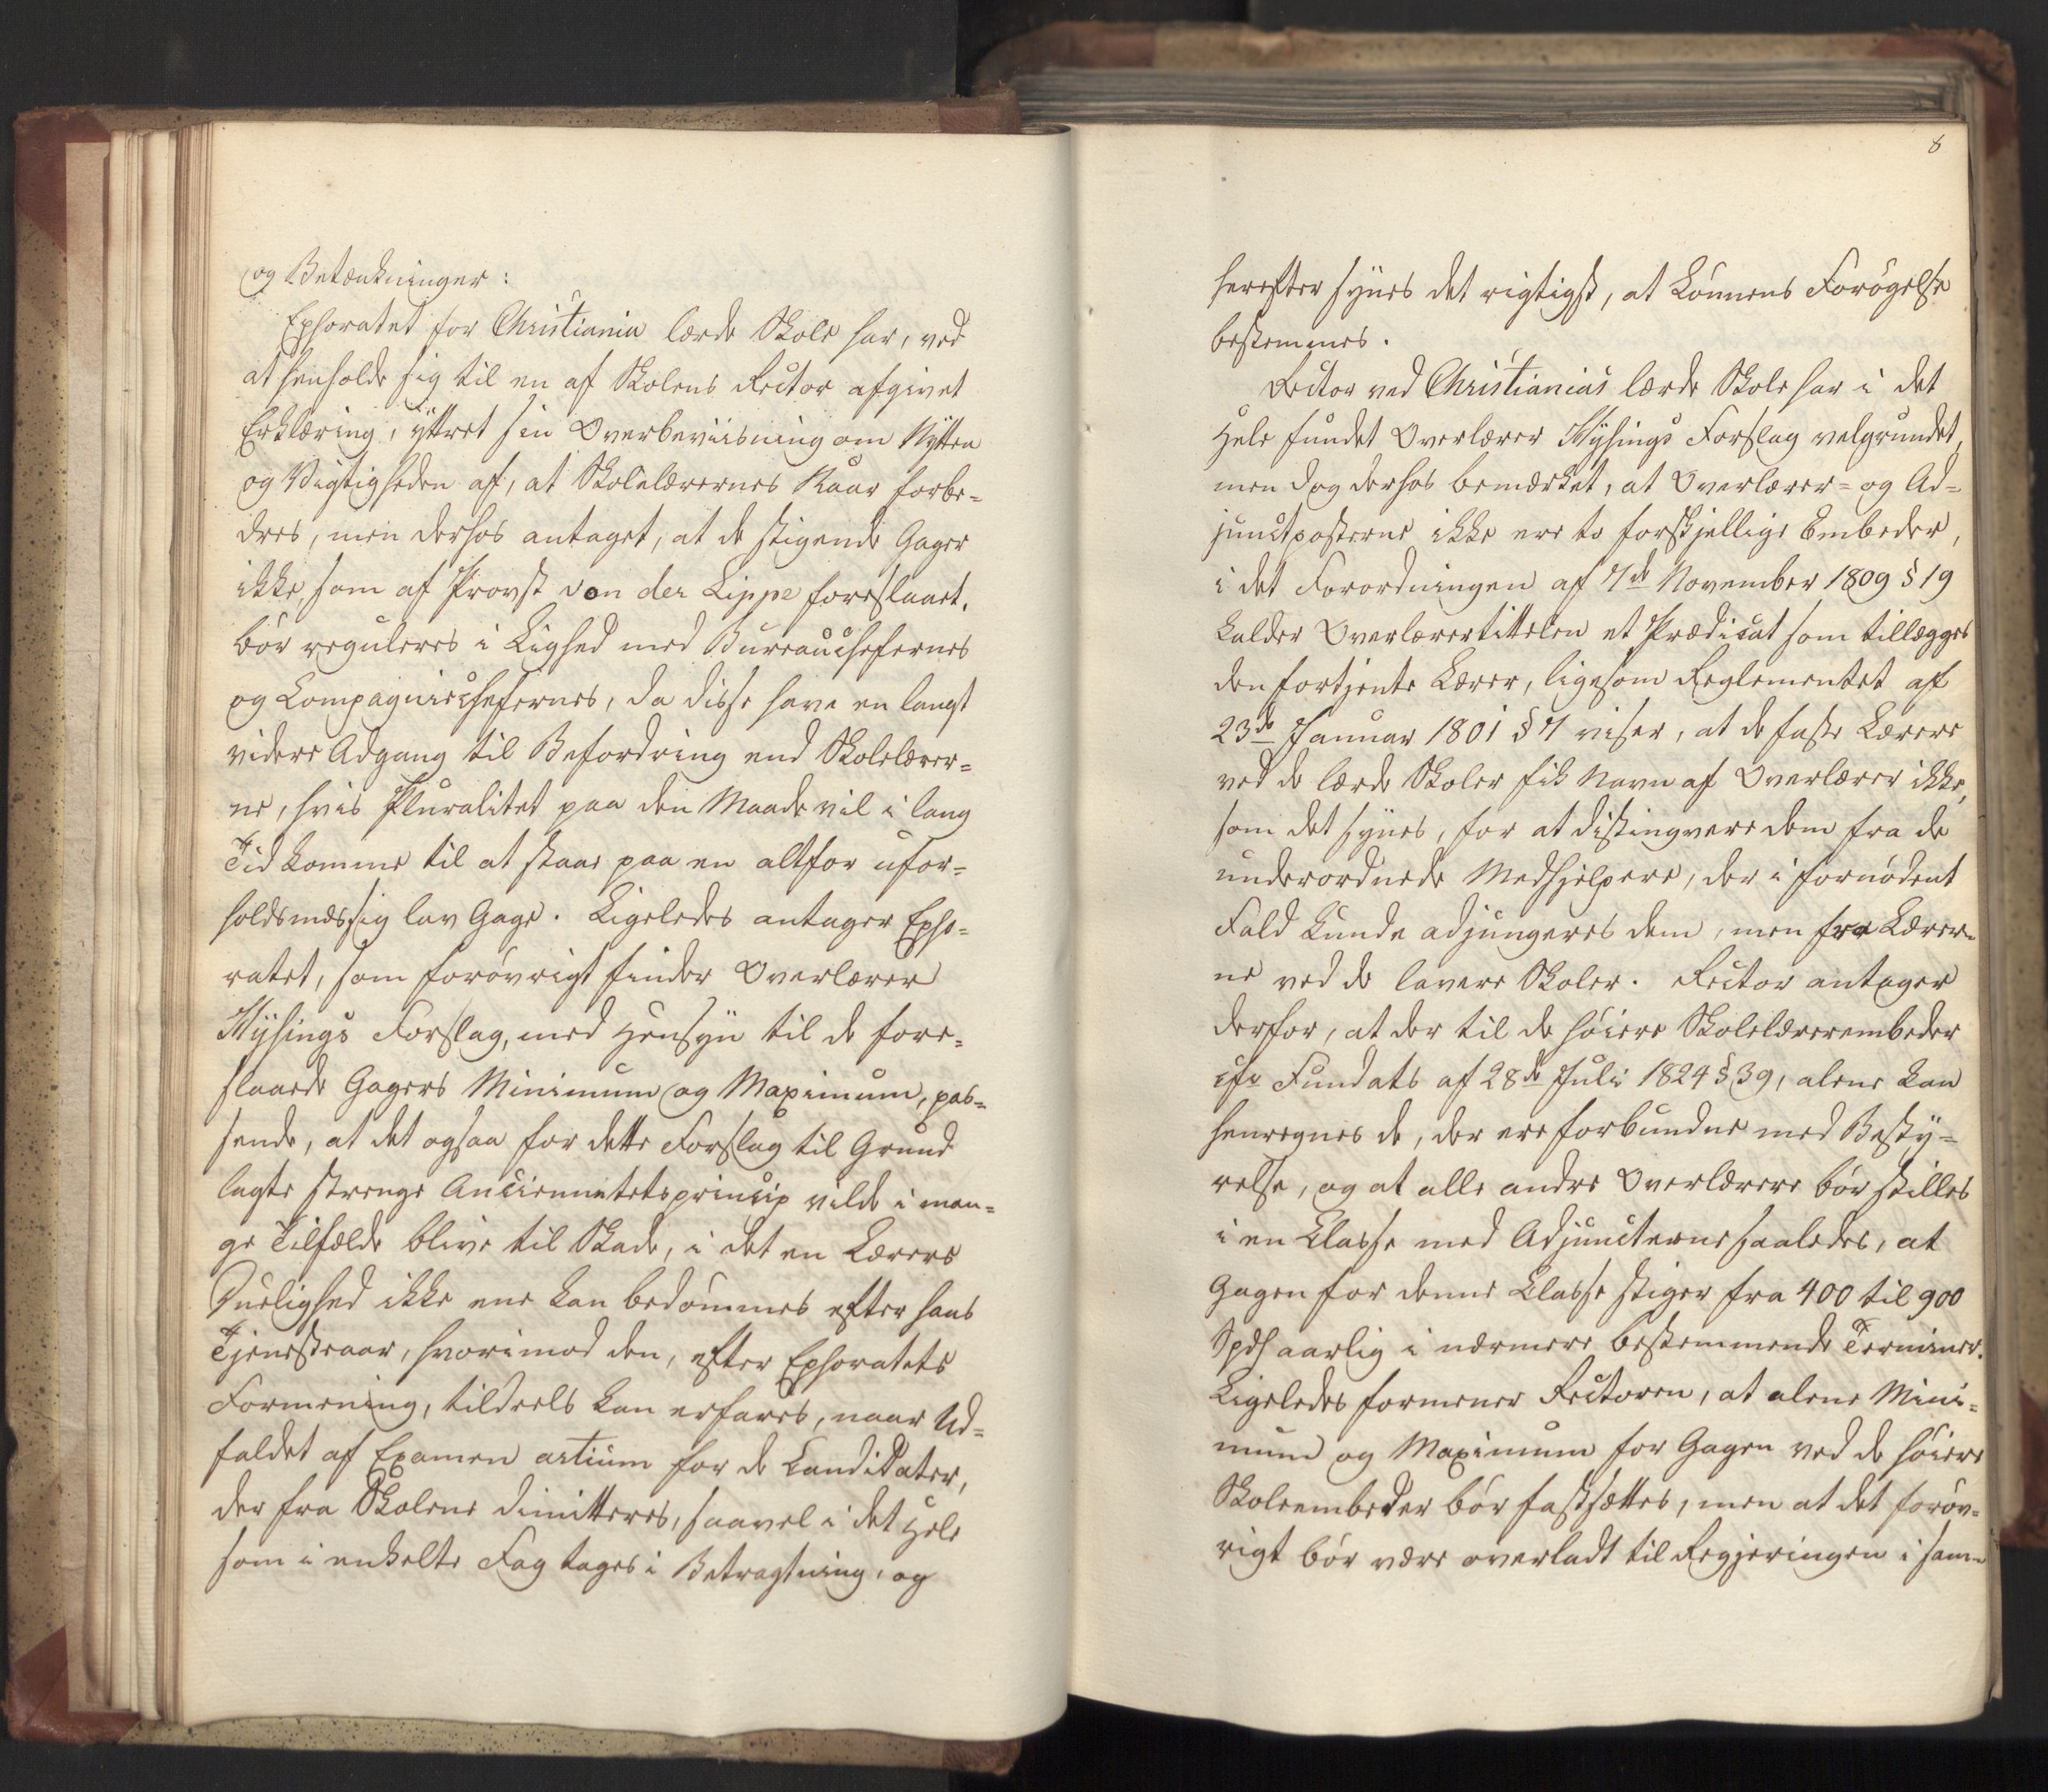 og Betænkninger:
Ephoratet for Christiania lærde Skole har, ved
at henholde sig til en af Skolens Rector afgivet
Erklæring, yttret sin Overbeviisning om Nytten
og Vigtigheden af, at Skolelærernes Kaar forbe=
dres, men derhos antaget, at de stigende Gager
ikke, som af Provst von der Lippe foreslaaet,
bör reguleres i Lighed med Bureauchefernes
og Compagniechefernes, da disse have en langt
videre Adgang til Befordring end Skolelærer=
ne, hvis Pluralitet paa den Maade vil i lang
Tid komme til at staae paa en altfor ufor=
holdsmæssig lav Gage. Ligeledes antager Epho=
ratet, som forövrigt finder Overlærer
Thysings Forslag, med Hensyn til de fore=
slaaede Gagers Minimum og Maximum, pas=
sende, at det ogsaa for dette Forslag til Grund
lagte strenge Anciennetetsprincip vilde i man=
ge Tilfælde blive til Skade, i det en Lærers
Duelighed ikke ene kan bedömmes efter hans
Tjenesteaar, hvorimod den, efter Ephoratets
Formening, tildeels kan erfares, naar Ud=
faldet af Examen artium for de Candidater,
der fra Skolene dimitteres, saavel i det Hele
som i enkelte Fag tages i Betragtning, og
8
herefter synes det rigtigst, at Lönnens Forögelse
bestemmes.
Rector ved Christianias lærde Skole har i det
Hele fundet Overlærer Thysings Forslag velgrundet,
men dog derhos bemærket, at Overlærer= og Ad=
junctposterne ikke ere to forskjellige Embeder,
i det Forordningen af 7de November 1809 § 19
kalder Overlærertittelen et Prædicat som tillægges
den fortjente Lærer, ligesom Reglementet af
23de Januar 1801 § 7 viser, at de faste Lærere
ved de lærde Skoler fik Navn af Overlærer ikke,
som det synes, for at distingvere dem fra de
underordnede Medhjelpere, der i fornödent
Fald kunde adjungeres dem, men fra Lærer=
ne ved de lavere Skoler. Rector antager
derfor, at der til de höiere Skolelærerembeder
cfr Fundats af 28de Juli 1824 § 39, alene kan
henregnes de, der ere forbundne med Besty=
relse, og at alle andre Overlærere bör stilles
i en Classe med Adjuncterne saaledes, at
Gagen for denne Classe stiger fra 400 til 900
Spd aarlig i nærmere bestemmende Terminer.
Ligeledes formener Rectoren, at alene Mini=
mum og Maximum for Gagen ved de höiere
Skoleembeder bör fastsættes, men at det foröv=
rigt bör være overladt til Regjeringen i sam=